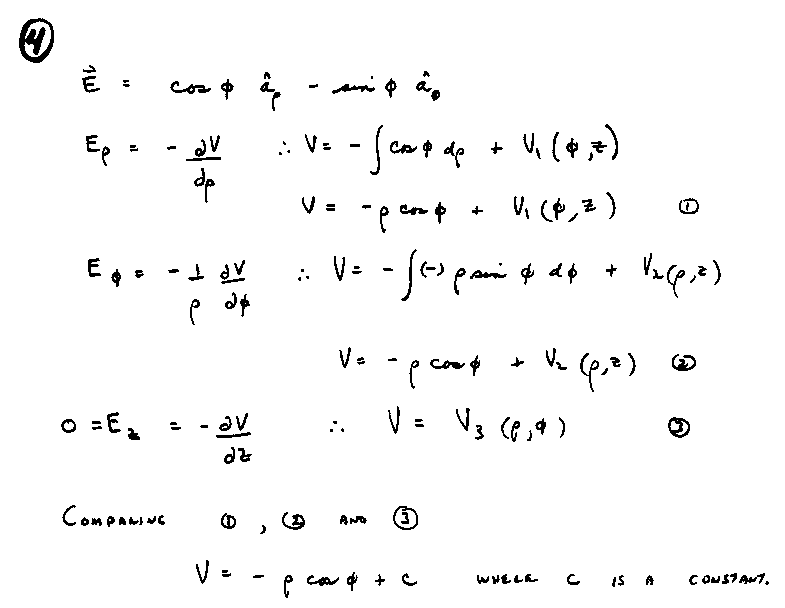 ④
E⃗ = cos φ â_ρ - sin φ â_φ
E_ρ = - ∂V/dρ ∴ V = - ∫ cos φ dρ + V₁ (φ, z)
V = - ρ cos φ + V₁ (φ, z) ①
E_φ = - 1/ρ ∂V/∂φ ∴ V = - ∫ (-) ρ sin φ dφ + V₂ (ρ, z)
V = - ρ cos φ + V₂ (ρ, z) ②
0 = E_z = - ∂V/∂z ∴ V = V₃ (ρ, φ) ③
COMPARING ① , ② AND ③
V = - ρ cos φ + C WHERE C IS A CONSTANT.